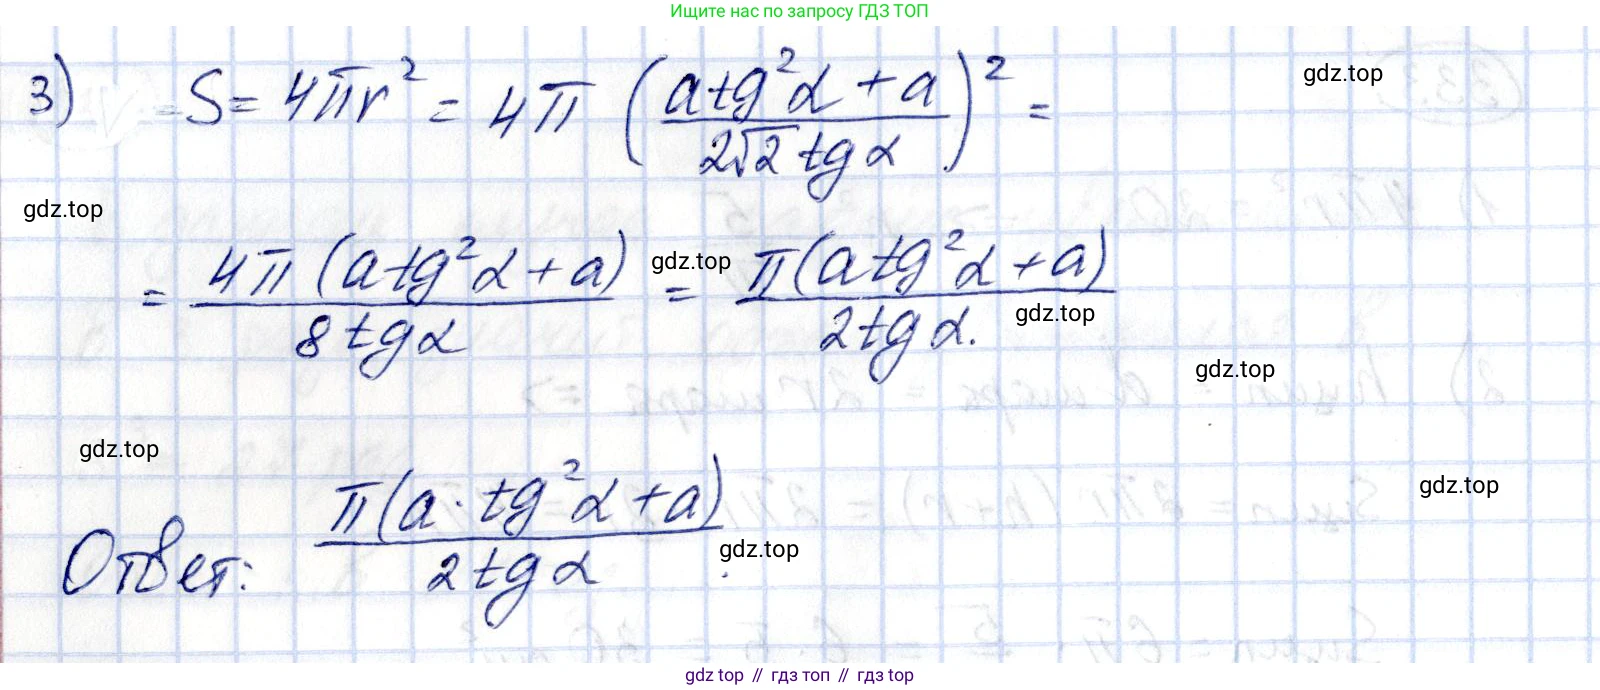 Ищите нас по запросу ГДЗ ТОП
3) S = 4πr² = 4π ((a tg²α + a) / (2√2 tg α))² =
gdz.top
gdz.top
= 4π (a tg²α + a) / (8 tg α) = π (a tg²α + a) / (2 tg α.)
gdz.top
gdz.top
gdz.top
gdz.top
gdz.top
Ответ: π (a · tg²α + a) / (2 tg α) .
gdz.top
gdz top // гдз топ // gdz top